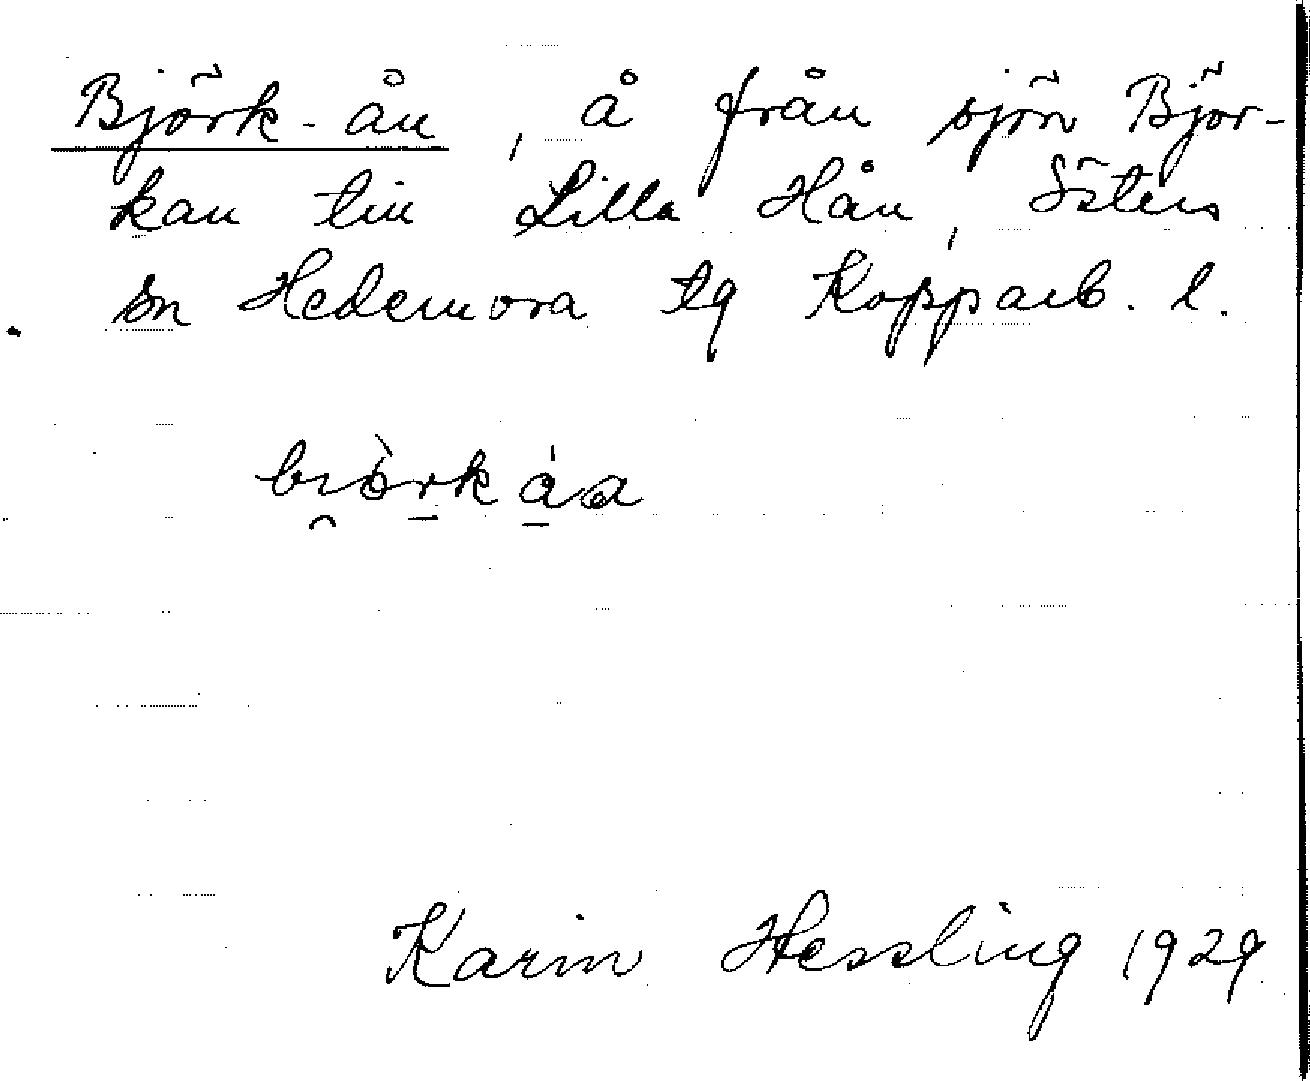 Björk-ån, å från sjön Björ-
kan till Lilla Hån, Säters
sn Hedemora tg Kopparb. l.
Karin Hessling 1929